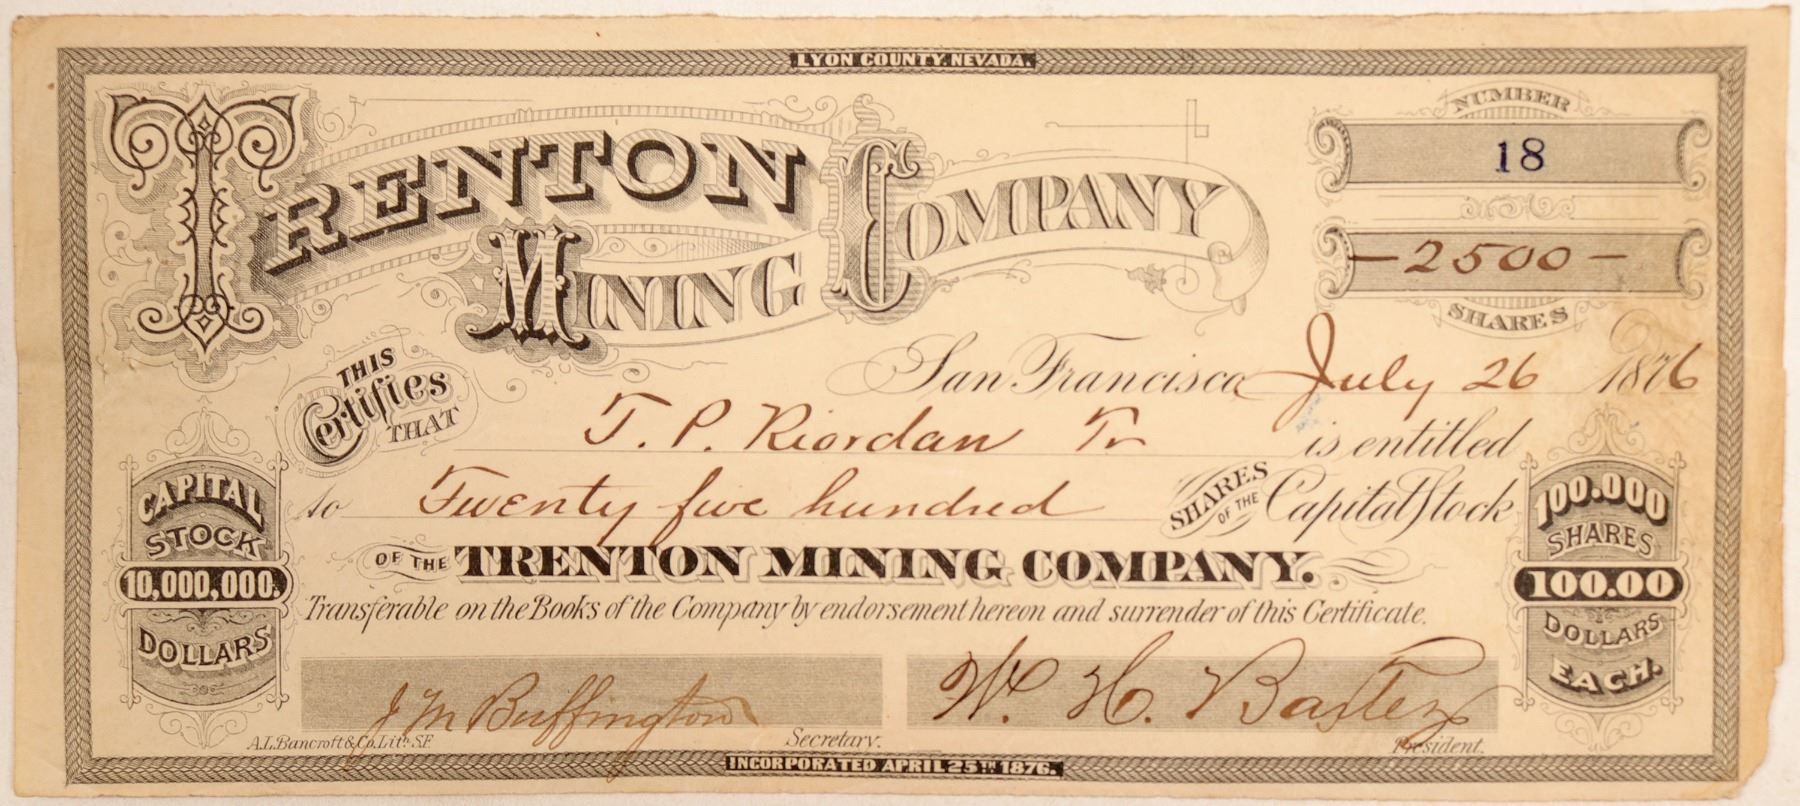 LYON COUNTY, NEVADA.
TRENTON
MINING COMPANY
NUMBER
18
-2500-
SHARES
San Francisco July 26 1876
THIS
Certifies
THAT
T. P. Riordan Tr is entitled
to Twenty five hundred SHARES OF THE Capital Stock
OF THE TRENTON MINING COMPANY.
Transferable on the Books of the Company by endorsement hereon and surrender of this Certificate.
CAPITAL
STOCK
10,000,000.
DOLLARS
100.000
SHARES
100.00
DOLLARS
EACH.
J M Buffington
Secretary.
W. H.
President.
A.L.Bancroft & Co. Lith. S.F.
INCORPORATED APRIL 25TH 1876.